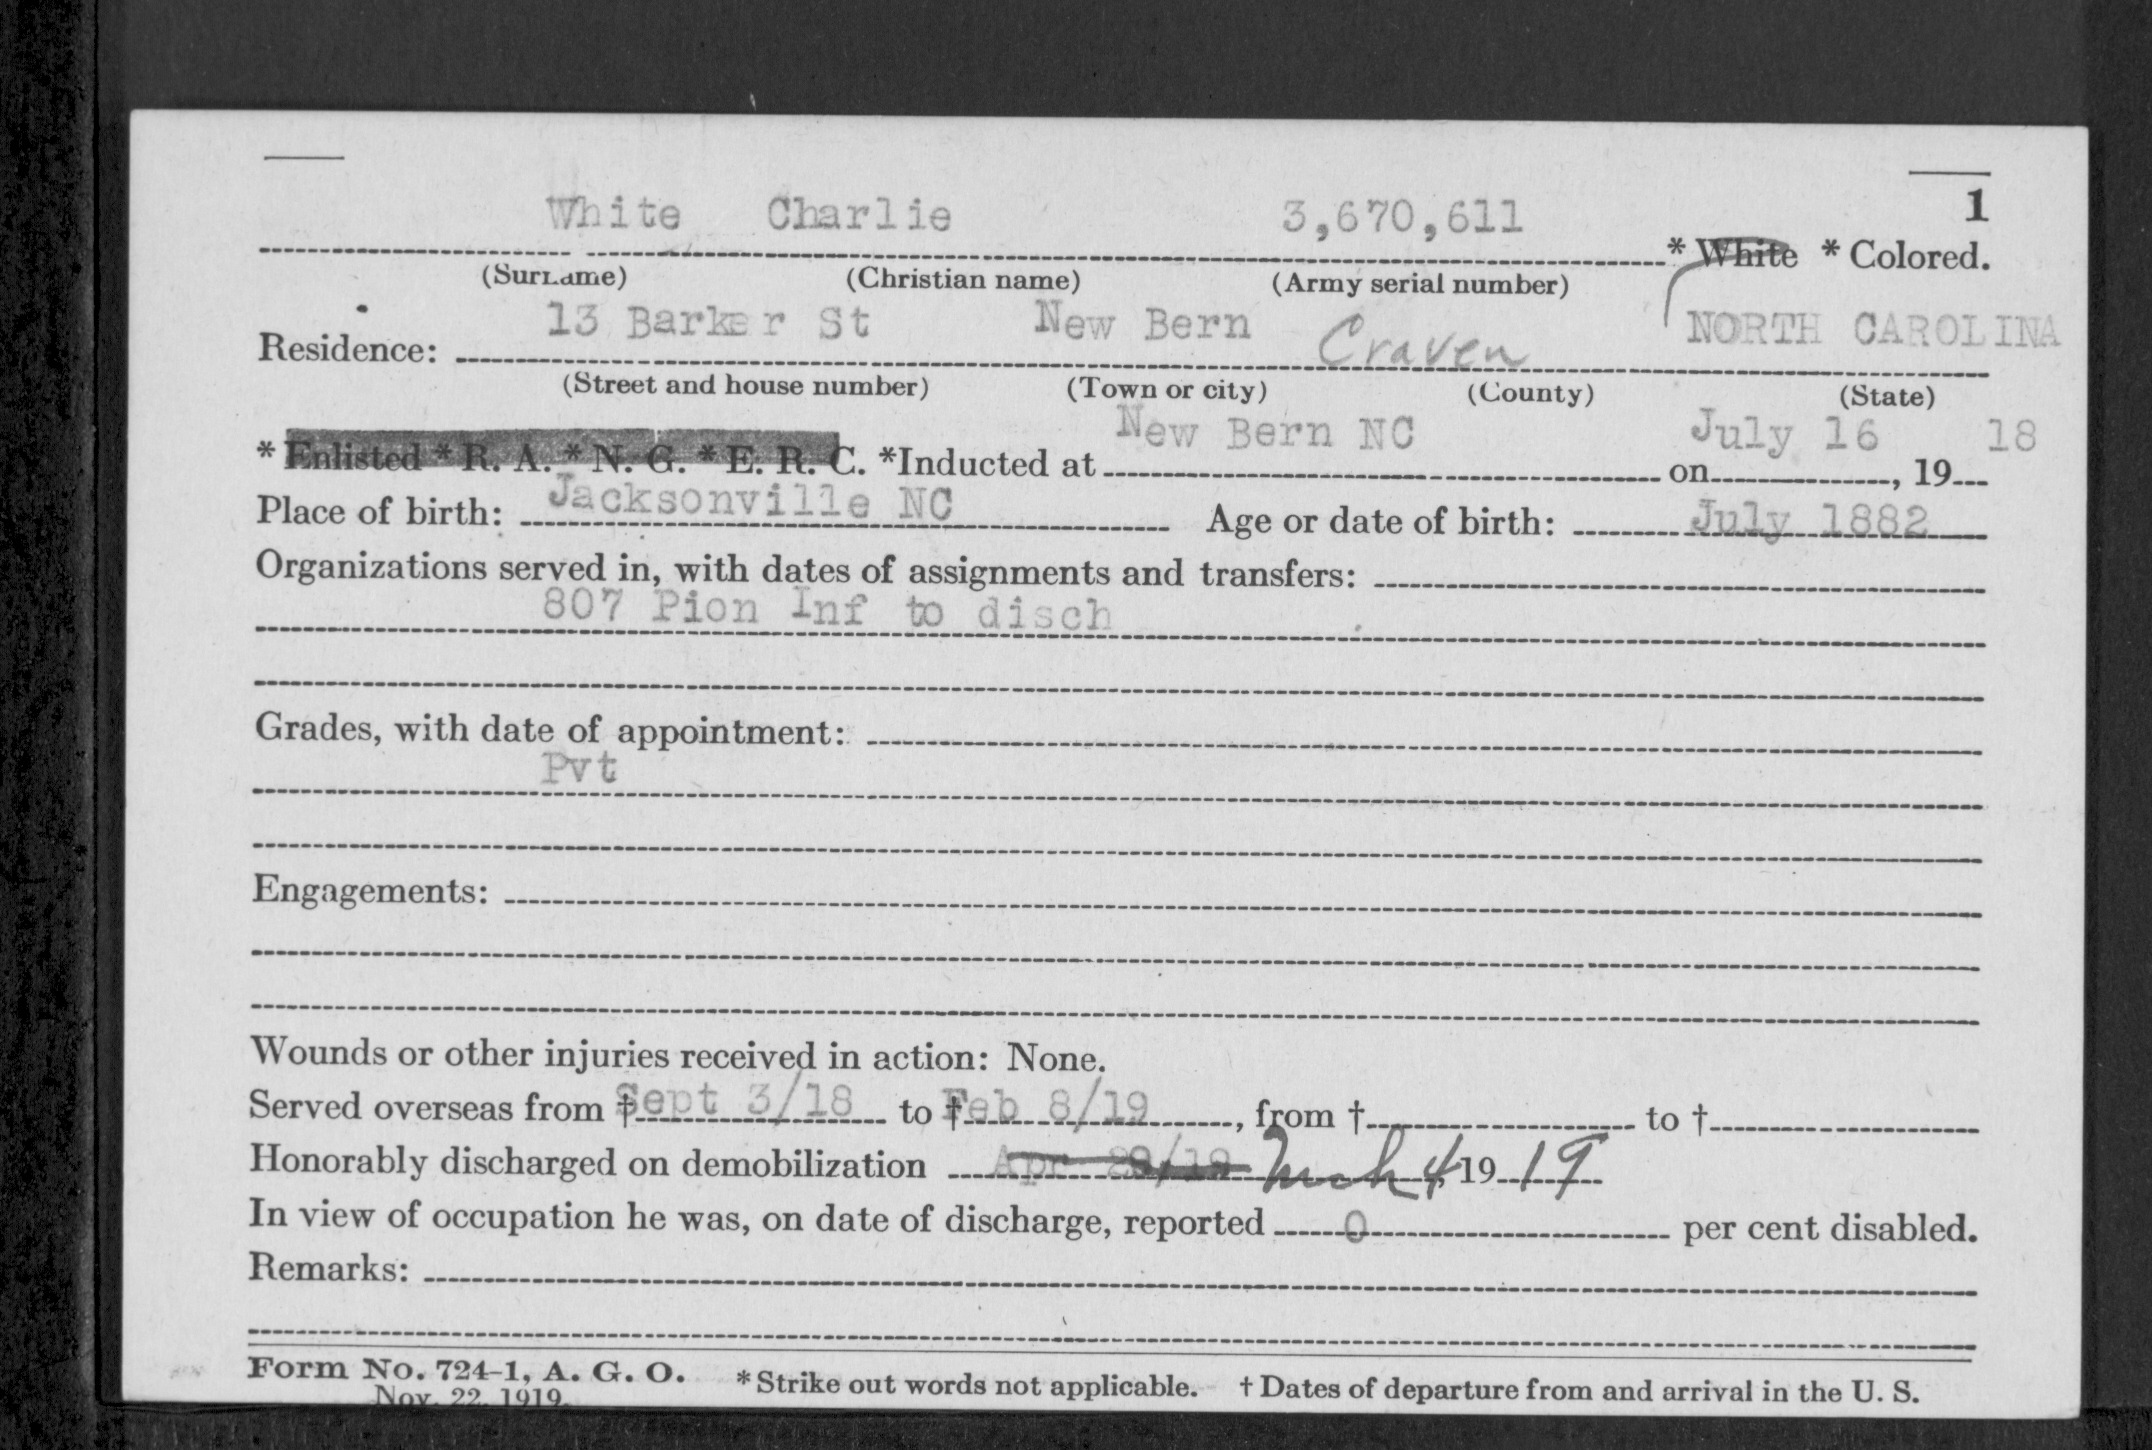 1
White Charlie 3,670,611 * White * Colored.
(Surname) (Christian name) (Army serial number)
Residence: 13 Barker St New Bern Craven NORTH CAROLINA
(Street and house number) (Town or city) (County) (State)
* Enlisted * R. A. * N. G. * E. R. C. *Inducted at New Bern NC on July 16, 1918
Place of birth: Jacksonville NC Age or date of birth: July 1882
Organizations served in, with dates of assignments and transfers:
807 Pion Inf to disch
Grades, with date of appointment:
Pvt
Engagements:
Wounds or other injuries received in action: None.
Served overseas from † Sept 3/18 to † Feb 8/19, from † to †
Honorably discharged on demobilization Mch 4, 19 19
In view of occupation he was, on date of discharge, reported 0 per cent disabled.
Remarks:
Form No. 724-1, A. G. O. * Strike out words not applicable. † Dates of departure from and arrival in the U. S.
Nov. 22, 1919.